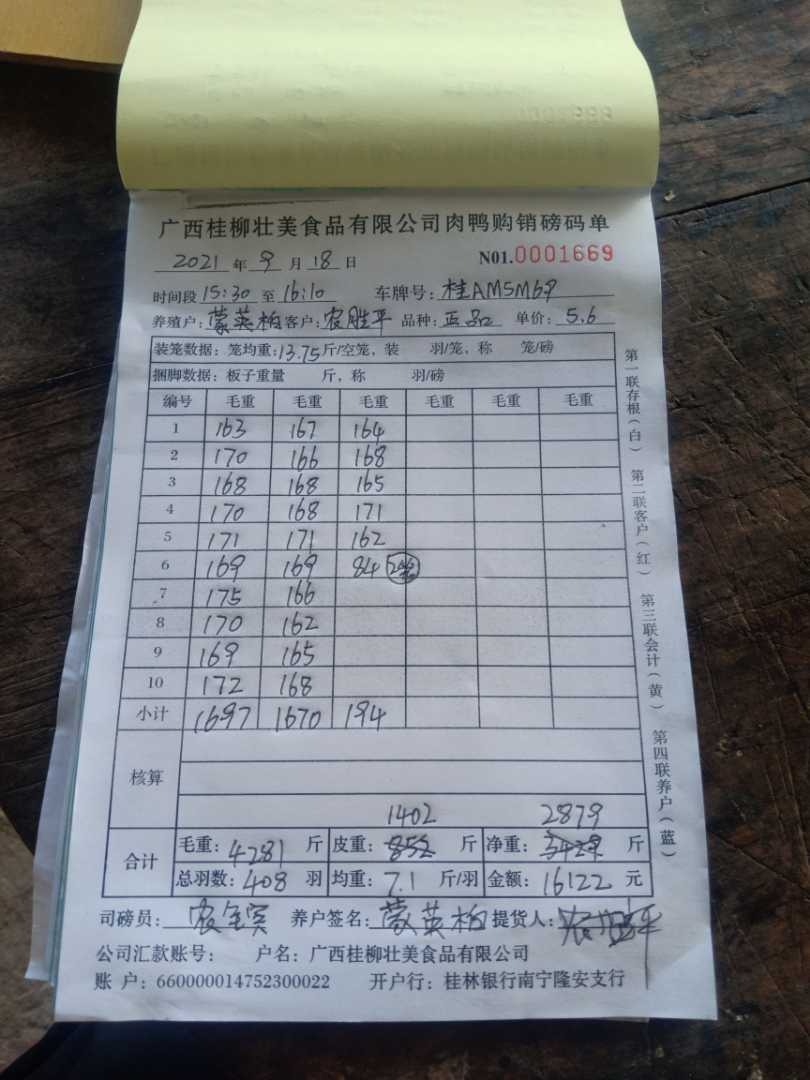 广西桂柳壮美食品有限公司肉鸭购销磅码单
2021 年 9 月 18 日 N01.0001669
时间段 15:30 至 16:10 车牌号: 桂AM5M69
养殖户: 蒙英柏 客户: 农胜平 品种: 正品 单价: 5.6
装笼数据: 笼均重: 13.75 斤/空笼, 装 羽/笼, 称 笼/磅
捆脚数据: 板子重量 斤, 称 羽/磅
编号 毛重 毛重 毛重 毛重 毛重 毛重
1 163 167 164
2 170 166 168
3 168 168 165
4 170 168 171
5 171 171 162
6 169 169 84
7 175 166
8 170 162
9 169 165
10 172 168
小计 1697 1670 194
核算
1402 2879
合计 毛重: 4281 斤 皮重: 852 斤 净重: 斤
总羽数: 408 羽 均重: 7.1 斤/羽 金额: 16122 元
司磅员: 养户签名: 蒙英柏 提货人: 农胜平
公司汇款账号: 户名: 广西桂柳壮美食品有限公司
账 户: 660000014752300022 开户行: 桂林银行南宁隆安支行
第一联存根(白) 第二联客户(红) 第三联会计(黄) 第四联养户(蓝)